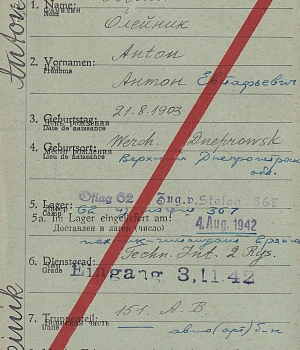 1. Name:
Фамилия
Nom
Олейник
Anton
2. Vornamen:
Имя
Prénoms
Антон
3. Geburtstag:
21.8.1903
День рождения
Date de naissance
4. Geburtsort:
Werch. Dneprowsk
Место рождения
Lieu de naissance
Верхний
обл.
5. Lager:
Oflag 62
Zug. v. Stalag 367
Camp
5a. im Lager eingeliefert am:
4. Aug. 1942
Доставлен в лагерь (число)
6. Dienstgrad:
Techn. Int. 2 Rgs.
Grade
Eingang 3.11.42
7. Truppenteil:
151. A-B.
Воинская часть
Unité
авто(арт) б-н
Anton